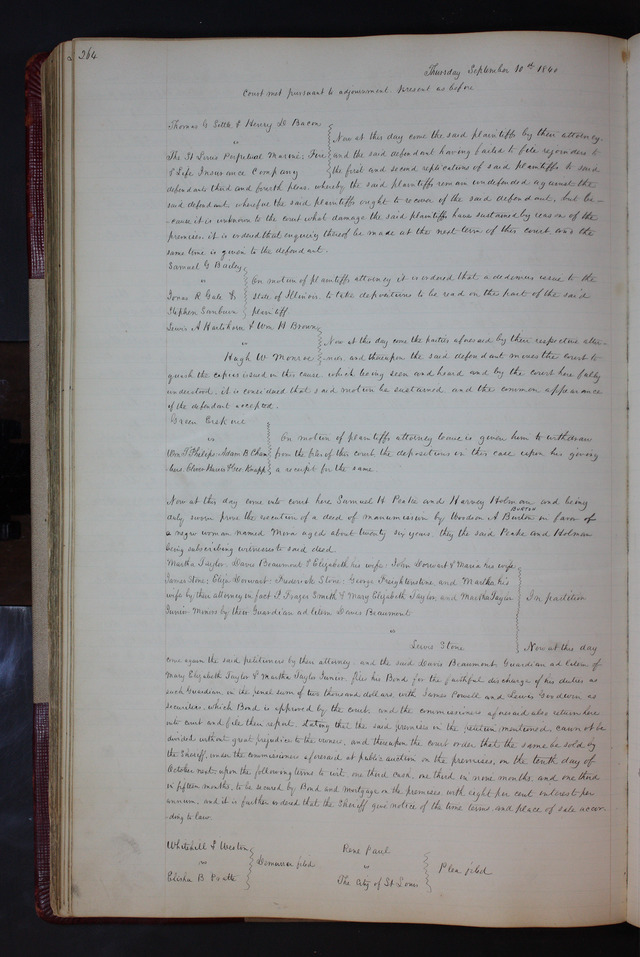 264
Thursday September 10th 1840
Court met pursuant to adjournment. Present as before
Thomas G Settle & Henry D Bacon
vs
The St Louis Perpetual Marine, Fire
& Life Insurance Company
Now at this day come the said plaintiffs by their attorney,
and the said defendant having failed to file rejoinders to
the first and second replications of said plaintiffs to said
defendants third and fourth pleas, whereby the said plaintiffs remain undefended against the
said defendant, wherefore the said plaintiffs ought to recover of the said defendant, but be-
cause it is unknown to the court what damage the said plaintiffs have sustained by reason of the
premises, it is ordered that enquiry thereof be made at the next term of this court, and the
same time is given to the defendant.
Samuel G Bailey
vs
Jonas R Gale &
Stephen Sanburn
On motion of plaintiffs attorney it is ordered that a dedimus issue to the
State of Illinois to take depositions to be read on the part of the said
plaintiff
Lewis A Hartshorn & Wm H Brown
vs
Hugh W Monroe
Now at this day come the parties aforesaid by their respective attor-
nies, and thereupon the said defendant moves the court to
quash the capias issued in this cause which being seen and heard and by the court here fully
understood, it is considered that said motion be sustained and the common appearance
of the defendant accepted.
Green Erskine
vs
Wm T Phelps Adam B Cham
bers, Oliver Harris & Geo. Knapp
On motion of plaintiffs attorney leave is given him to withdraw
from the files of this court the depositions in this case upon his giving
a receipt for the same.
Now at this day come into court here Samuel H Peake and Harvey Holman and being
BURTON
duly sworn prove the execution of a deed of manumission by Woodson A Burton in favor of
a negro woman named Mena aged about twenty six years, they the said Peake and Holman
being subscribing witnesses to said deed.
Martha Taylor, Davis Beaumont & Elizabeth his wife, John Dorwart & Maria his wife
James Stone, Eliza Dorwart, Frederick Stone, George Freightenstine and Martha his
wife by their attorney in fact P Frazer Smith & Mary Elizabeth Taylor and Martha Taylor
Junior Minors by their Guardian ad litem Davis Beaumont
In partition
vs
Lewis Stone
Now at this day
come again the said petitioners by their attorney, and the said Davis Beaumont Guardian ad litem of
Mary Elizabeth Taylor & Martha Taylor Junior, files his Bond for the faithful discharge of his duties as
such Guardian, in the penal sum of two thousand dollars, with James Powell and Lewis Goodwin as
securities, which Bond is approved by the court, and the commissioners aforesaid also return here
into court and file their report, stating that the said premises in the petition mentioned, cannot be
divided without great prejudice to the owners, and thereupon the court order that the same be sold by
the Sheriff, under the commissioners aforesaid, at public auction on the premises, on the tenth day of
October next, upon the following terms to wit, one third cash, one third in nine months, and one third
in fifteen months, to be secured by Bond and mortgage on the premises, with eight per cent interest per
annum, and it is further ordered that the Sheriff give notice of the time terms and place of sale accor-
ding to law.
Whitehill & Weston
vs
Elisha B Pratte
Demurrer filed
Rene Paul
vs
The City of St Louis
Plea filed